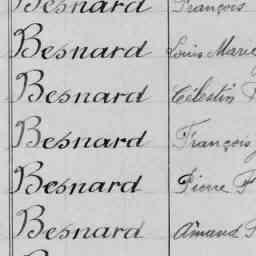 Besnard François
Besnard Louis Marie
Besnard Célestin
Besnard François
Besnard Pierre F
Besnard Amand